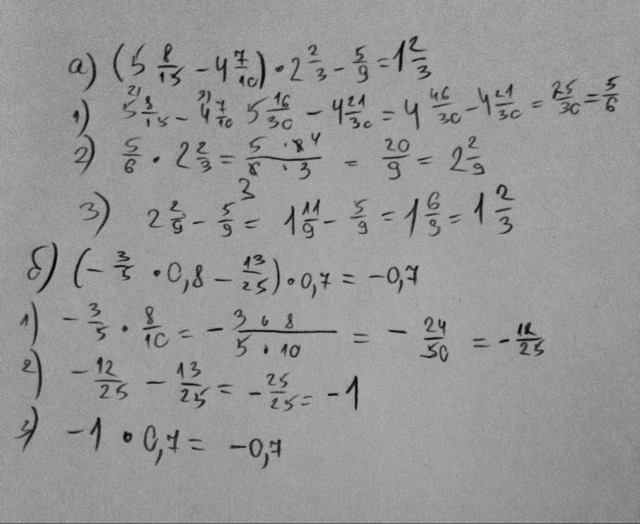 а) (5 8/15 - 4 7/10) · 2 2/3 - 5/9 = 1 2/3
1) 5 8/15 - 4 7/10 5 16/30 - 4 21/30 = 4 46/30 - 4 21/30 = 25/30 = 5/6
2) 5/6 · 2 2/3 = 5 · 8 4 / 6 · 3 = 20/9 = 2 2/9
3
3) 2 2/9 - 5/9 = 1 11/9 - 5/9 = 1 6/9 = 1 2/3
б) (- 3/5 · 0,8 - 13/25) · 0,7 = -0,7
1) - 3/5 · 8/10 = - 3 · 8 / 5 · 10 = - 24/50 = - 12/25
2) - 12/25 - 13/25 = - 25/25 = -1
3) -1 · 0,7 = -0,7